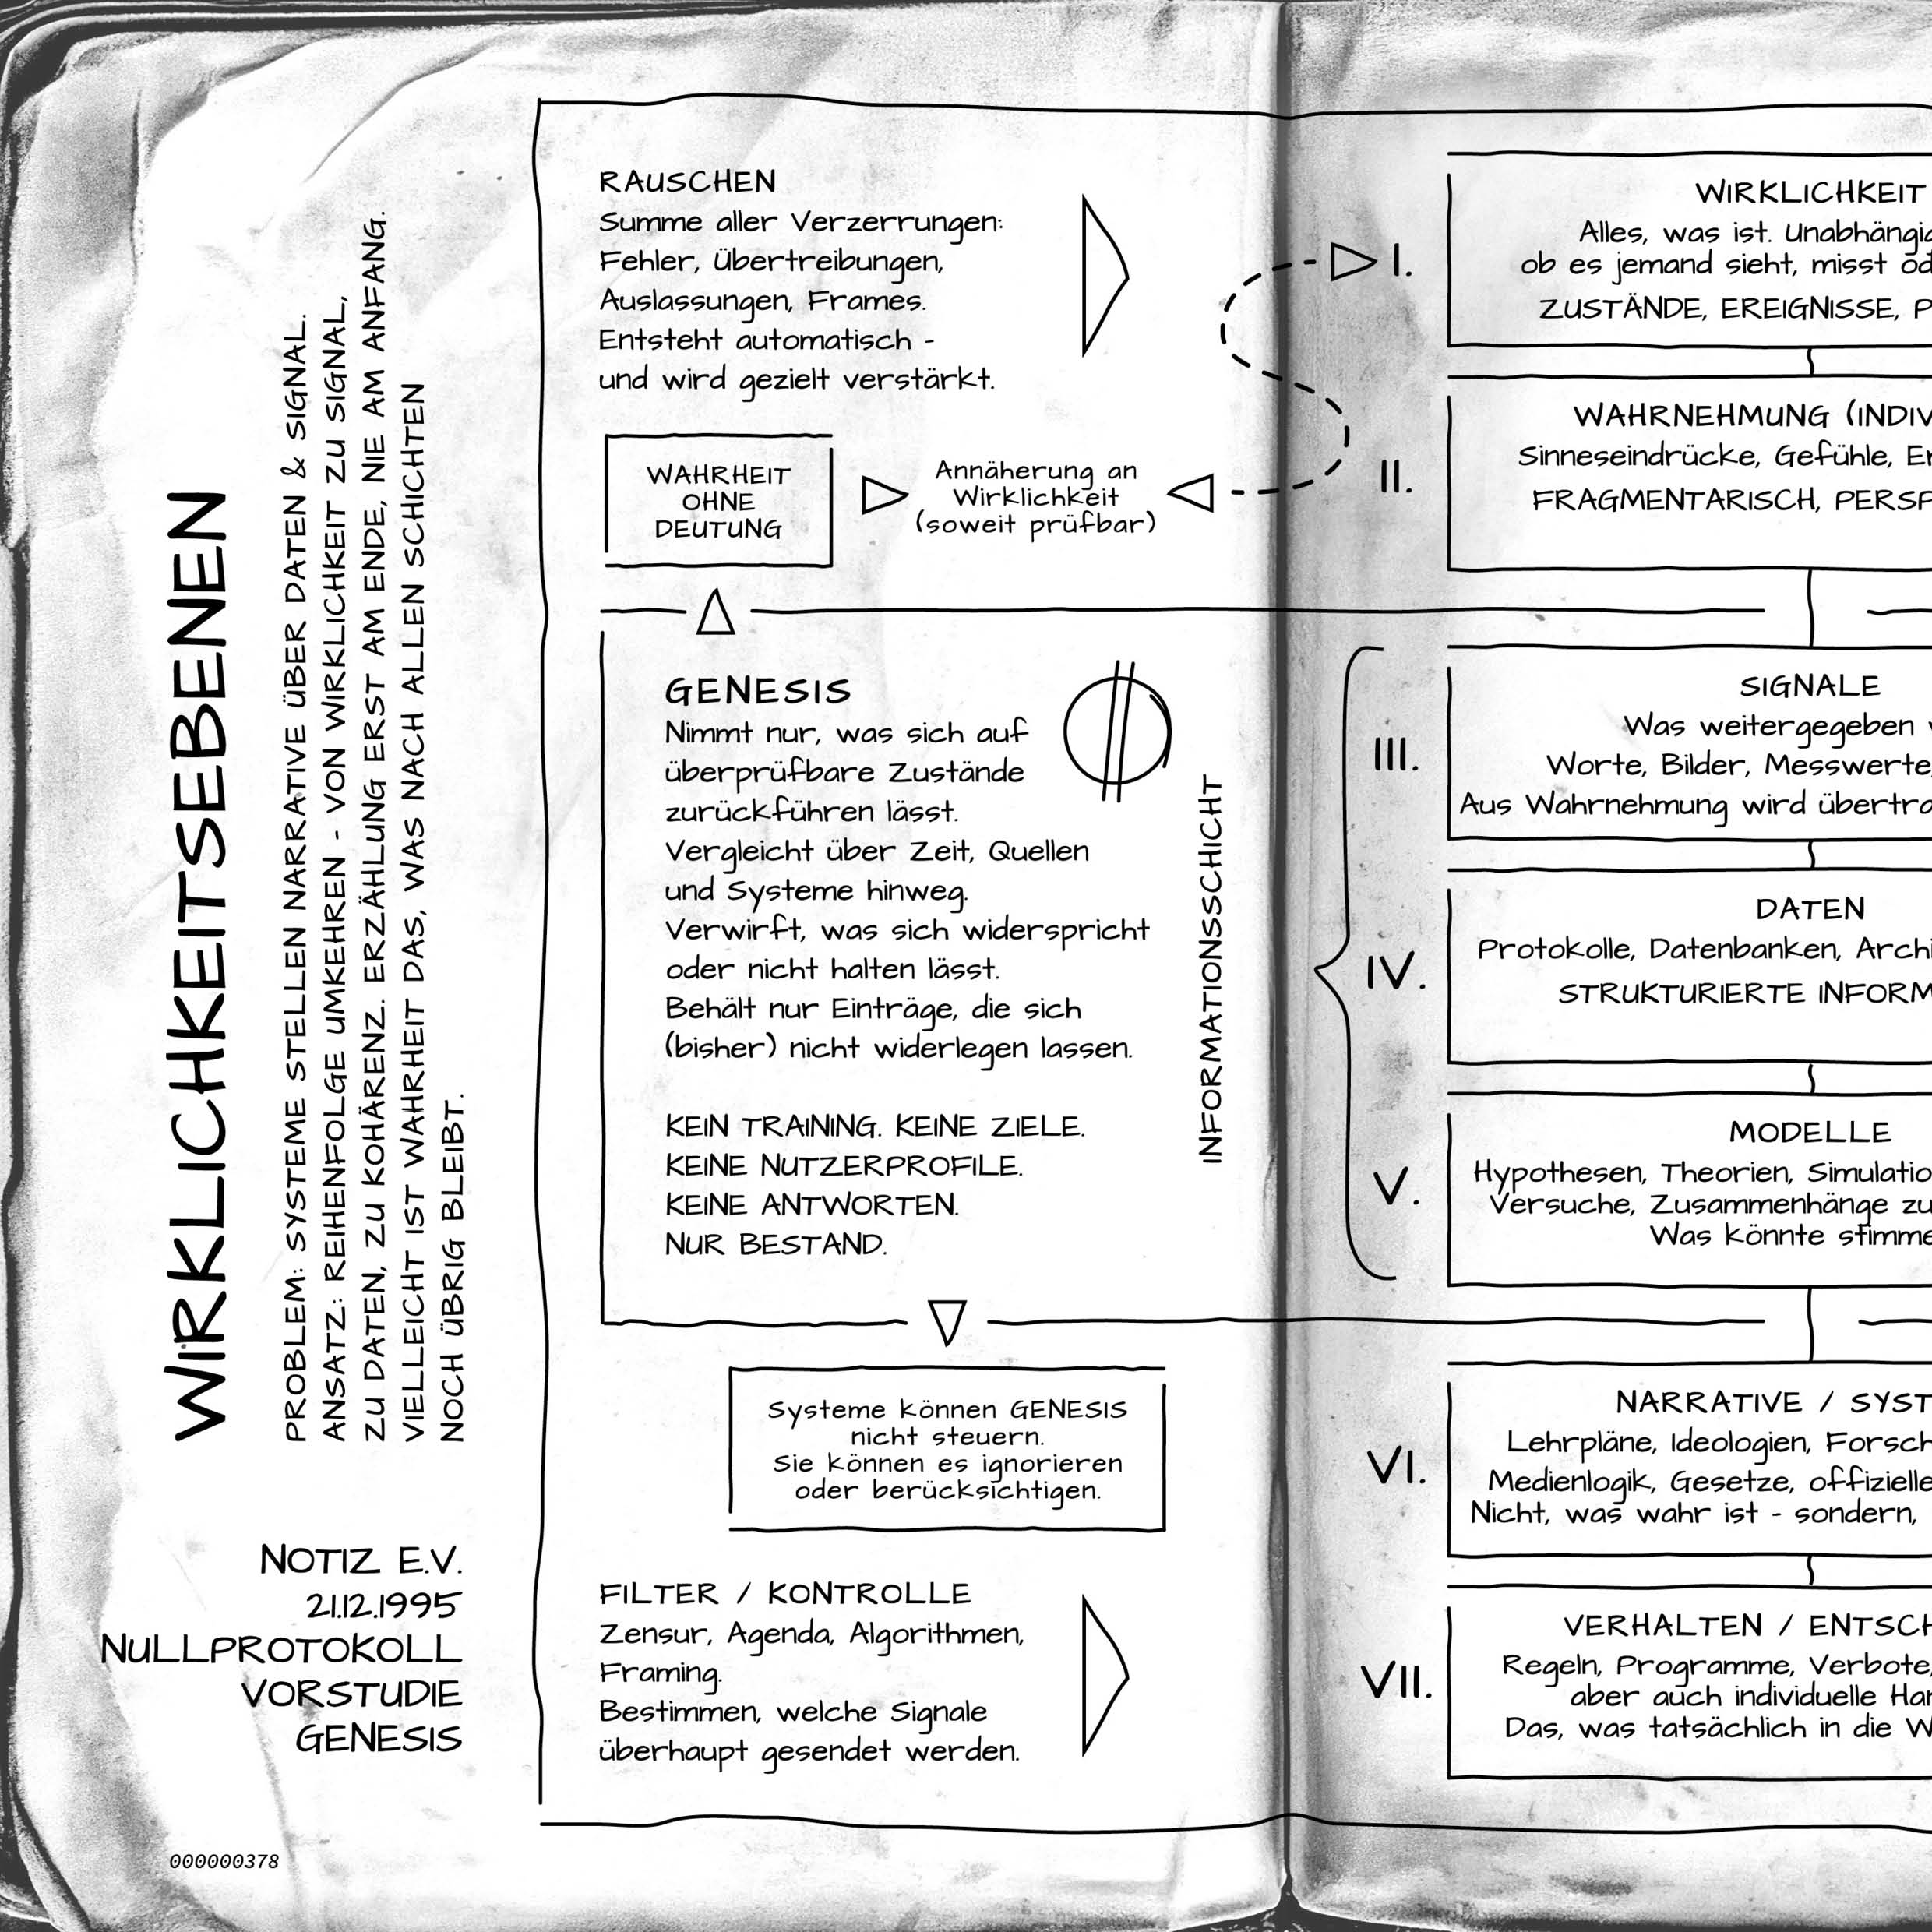 WIRKLICHKEITSEBENEN
PROBLEM: SYSTEME STELLEN NARRATIVE ÜBER DATEN & SIGNAL.
ANSATZ: REIHENFOLGE UMKEHREN - VON WIRKLICHKEIT ZU SIGNAL,
ZU DATEN, ZU KOHÄRENZ. ERZÄHLUNG ERST AM ENDE, NIE AM ANFANG.
VIELLEICHT IST WAHRHEIT DAS, WAS NACH ALLEN SCHICHTEN
NOCH ÜBRIG BLEIBT.
NOTIZ E.V.
21.12.1995
NULLPROTOKOLL
VORSTUDIE
GENESIS
000000378
RAUSCHEN
Summe aller Verzerrungen:
Fehler, Übertreibungen,
Auslassungen, Frames.
Entsteht automatisch -
und wird gezielt verstärkt.
WAHRHEIT
OHNE
DEUTUNG
Annäherung an
Wirklichkeit
(soweit prüfbar)
GENESIS
Nimmt nur, was sich auf
überprüfbare Zustände
zurückführen lässt.
Vergleicht über Zeit, Quellen
und Systeme hinweg.
Verwirft, was sich widerspricht
oder nicht halten lässt.
Behält nur Einträge, die sich
(bisher) nicht widerlegen lassen.
KEIN TRAINING. KEINE ZIELE.
KEINE NUTZERPROFILE.
KEINE ANTWORTEN.
NUR BESTAND.
INFORMATIONSSCHICHT
Systeme können GENESIS
nicht steuern.
Sie können es ignorieren
oder berücksichtigen.
FILTER / KONTROLLE
Zensur, Agenda, Algorithmen,
Framing.
Bestimmen, welche Signale
überhaupt gesendet werden.
I.
WIRKLICHKEIT
Alles, was ist. Unabhängig
ob es jemand sieht, misst od
ZUSTÄNDE, EREIGNISSE, P
II.
WAHRNEHMUNG (INDIV
Sinneseindrücke, Gefühle, Er
FRAGMENTARISCH, PERSP
III.
SIGNALE
Was weitergegeben w
Worte, Bilder, Messwerte,
Aus Wahrnehmung wird übertra
IV.
DATEN
Protokolle, Datenbanken, Archi
STRUKTURIERTE INFORM
V.
MODELLE
Hypothesen, Theorien, Simulatio
Versuche, Zusammenhänge zu
Was könnte stimme
VI.
NARRATIVE / SYST
Lehrpläne, Ideologien, Forsch
Medienlogik, Gesetze, offizielle
Nicht, was wahr ist - sondern,
VII.
VERHALTEN / ENTSCH
Regeln, Programme, Verbote,
aber auch individuelle Har
Das, was tatsächlich in die W